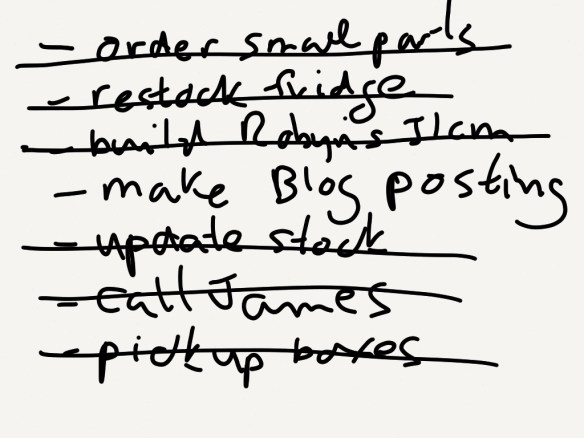 - order small parts
- restock fridge
- build Robyn's
- make Blog posting
- update stock
- call James
- pick up boxes